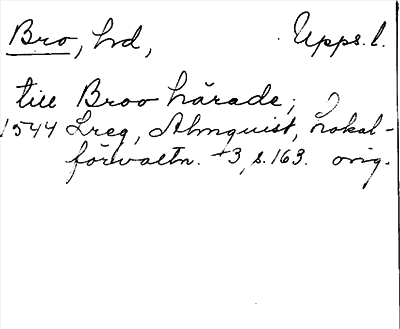 Bro, hd, Upps. l.
till Broo härade,
1544 Lreg, Almquist, Lokal-
förvaltn. +3, s. 163. orig.